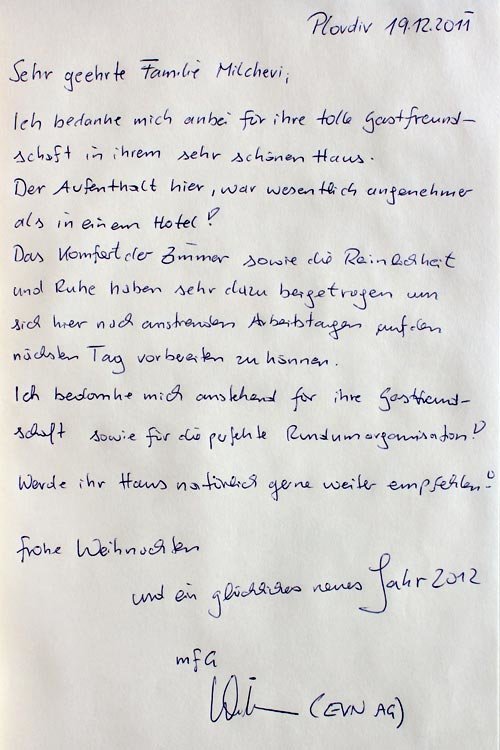 Plovdiv 19.12.2011
Sehr geehrte Familie Milchevi,
Ich bedanke mich anbei für ihre tolle Gastfreund-
schaft in ihrem sehr schönen Haus.
Der Aufenthalt hier, war wesentlich angenehmer
als in einem Hotel!
Das Komfort der Zimmer sowie die Reinlichkeit
und Ruhe haben sehr dazu beigetragen um
sich hier nach anstrenden Arbeitstagen auf den
nächsten Tag vorbereiten zu können.
Ich bedanke mich anstehend für ihre Gastfreund-
schaft sowie für die perfekte Rundumorganisation!
Werde ihr Haus natürlich gerne weiter empfehlen!
frohe Weihnachten
und ein glückliches neues Jahr 2012
mfG
(EVN AG)